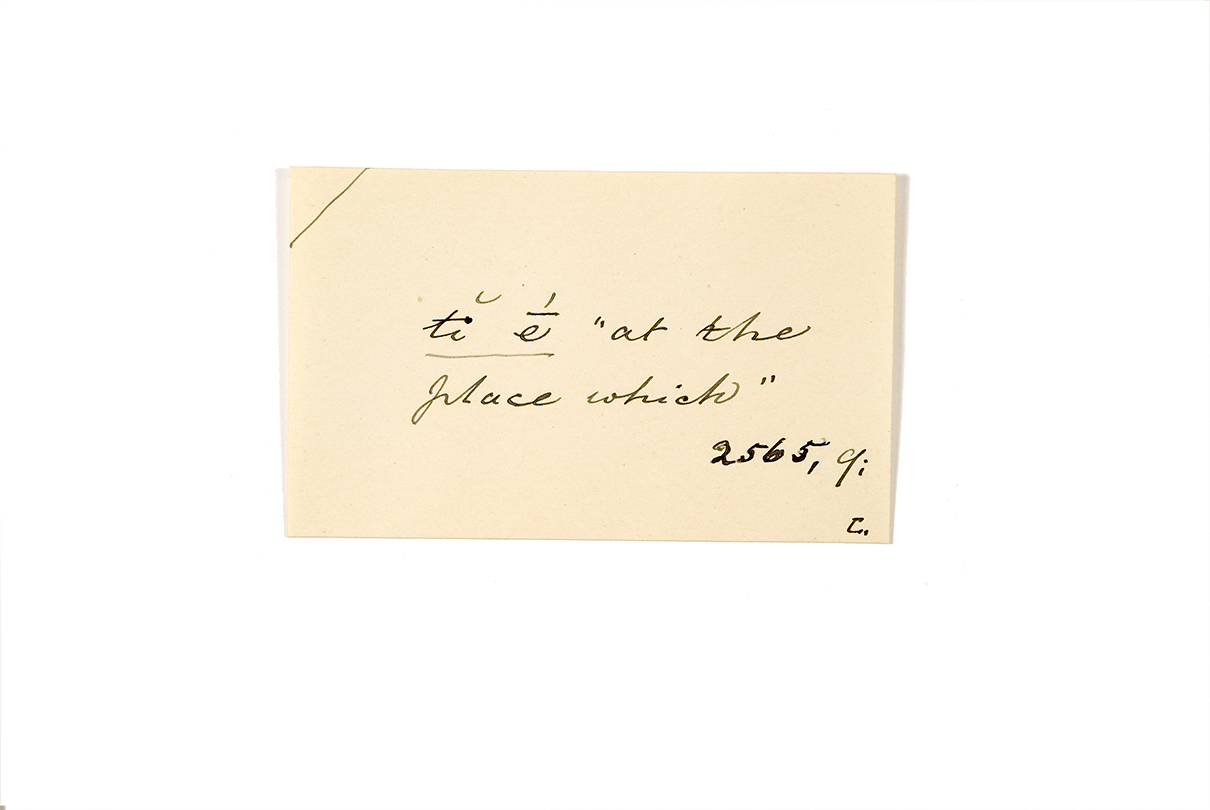 tĭ ḗ "at the
place which"
2565, 9;
C.